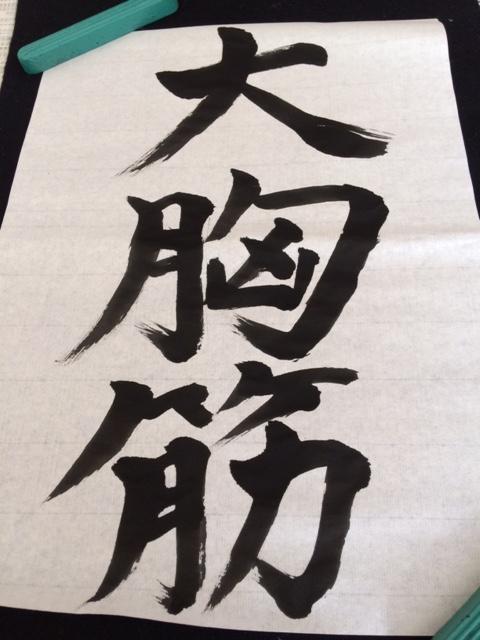 大胸筋